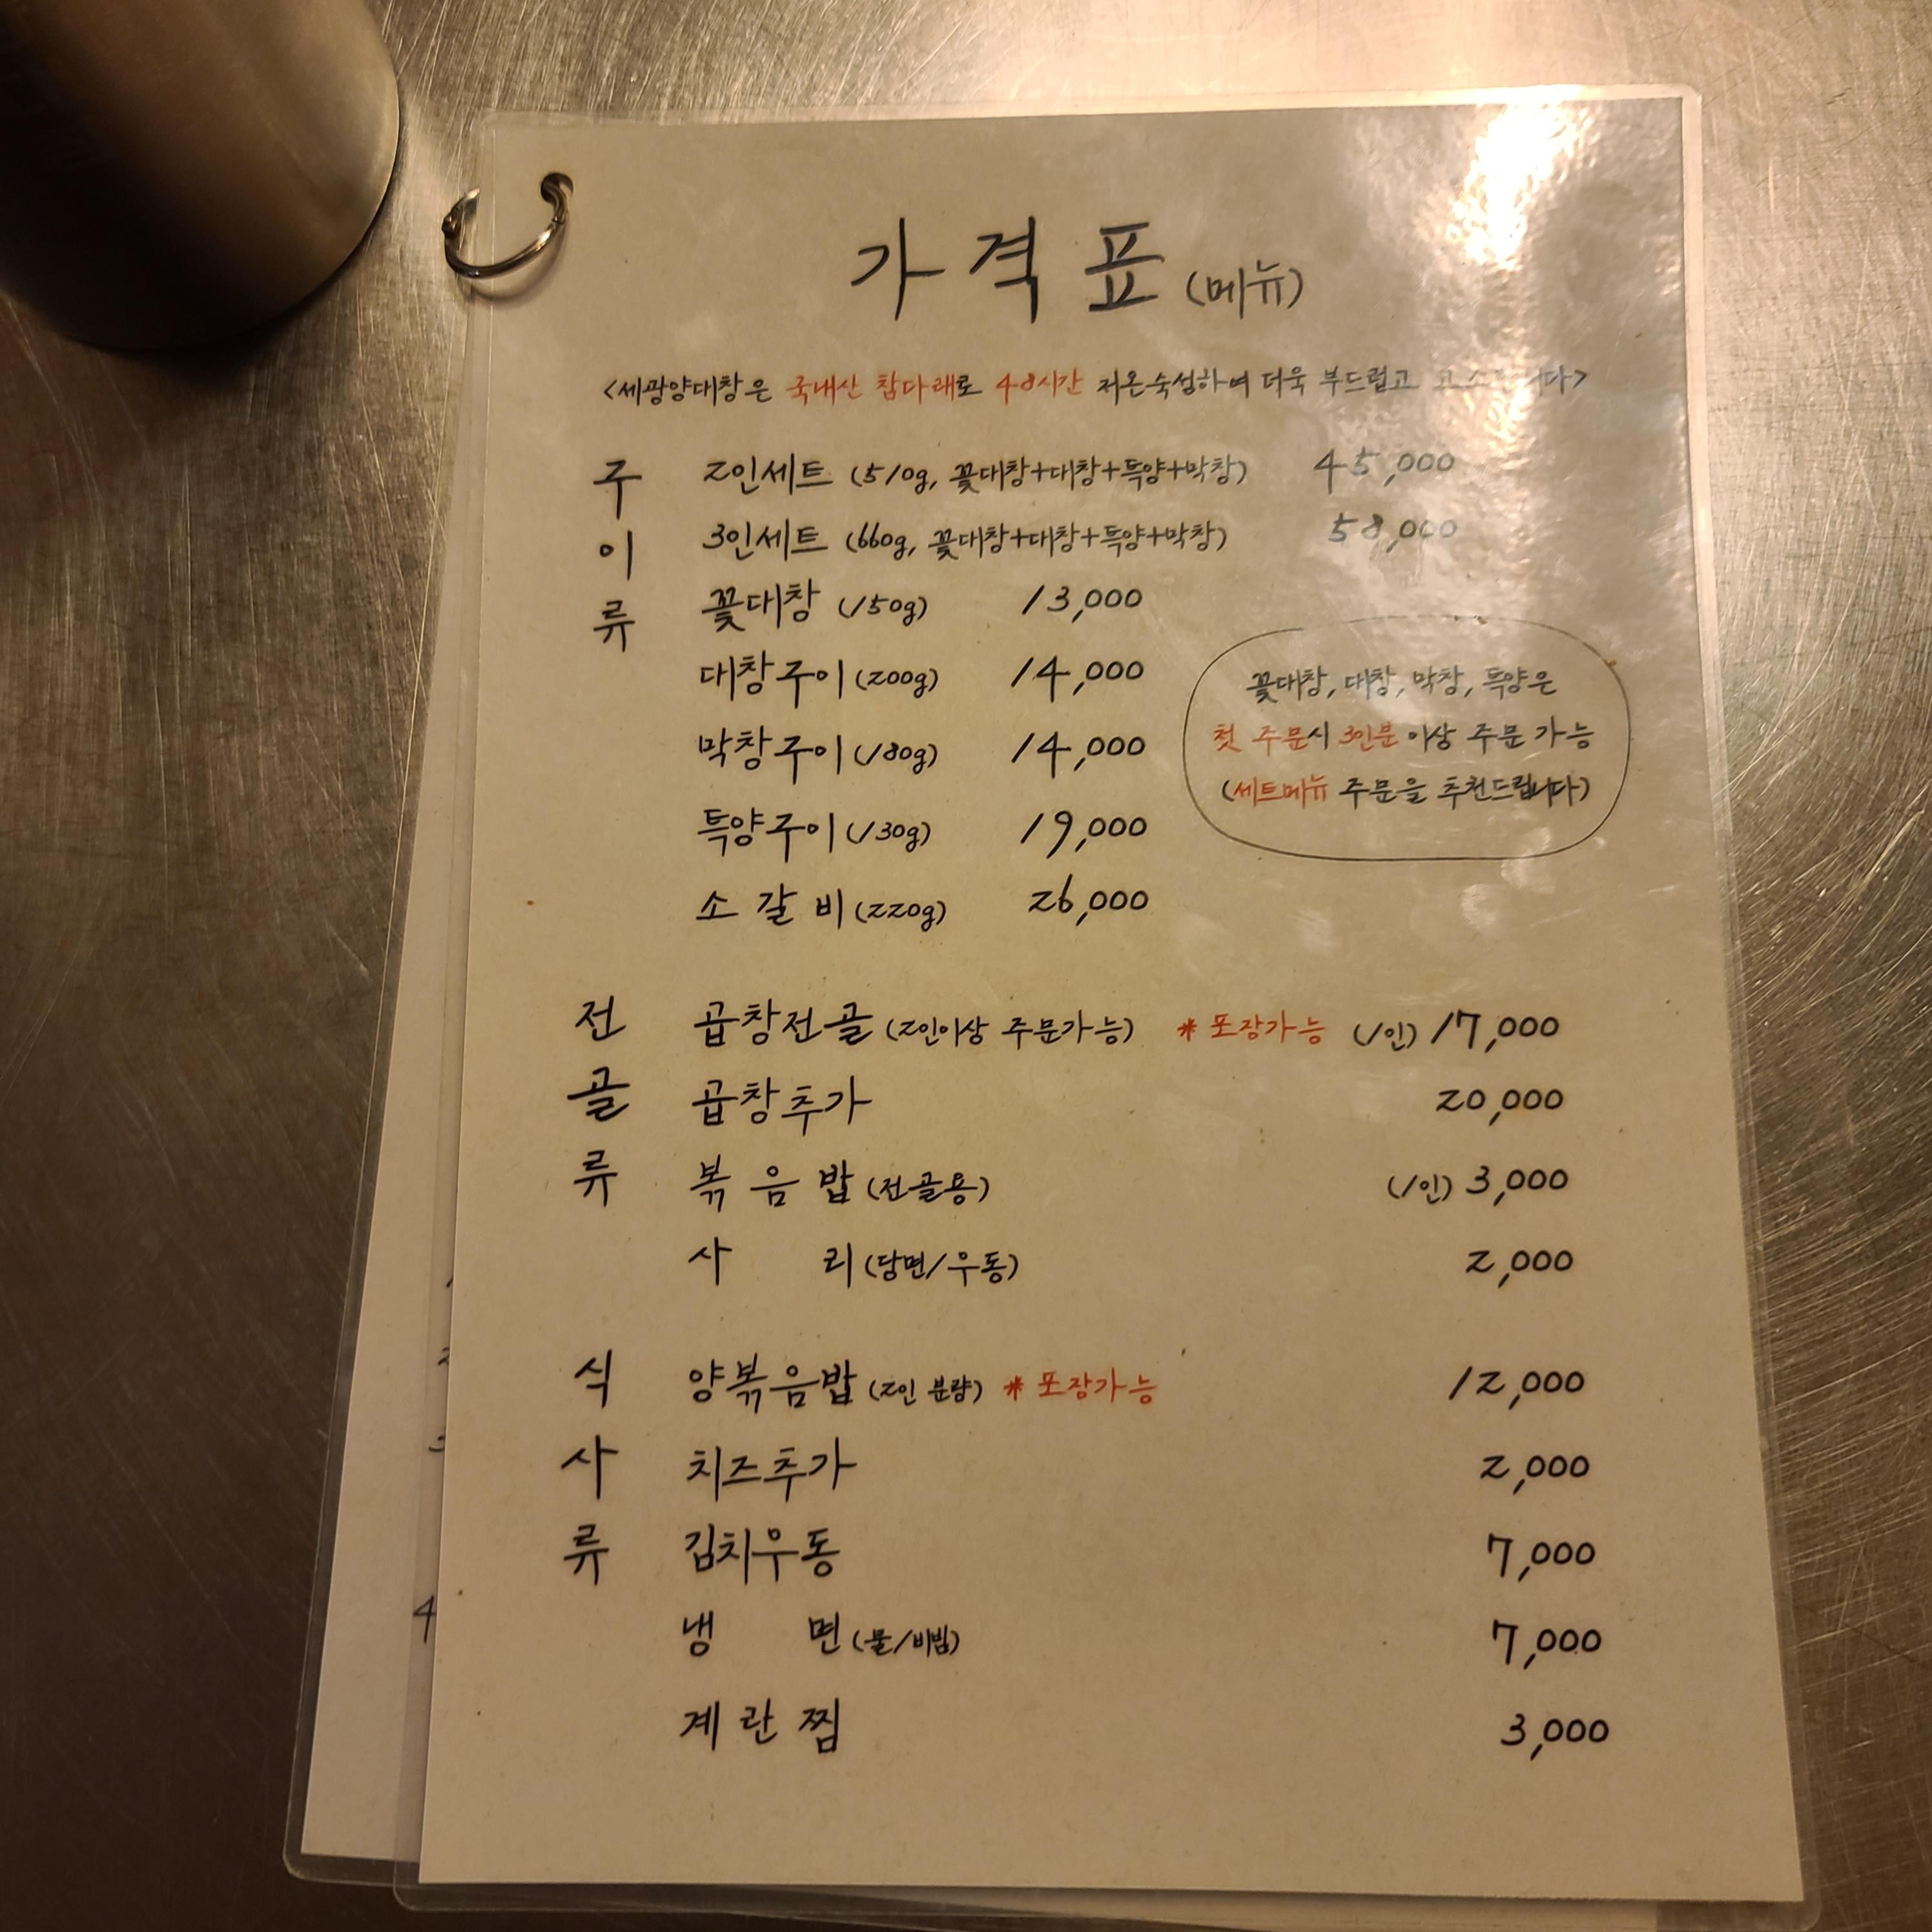 가격표 (메뉴)
<세광양대창은 국내산 참다래로 48시간 저온숙성하여 더욱 부드럽고
구이류
2인세트 (510g, 꽃대창+대창+특양+막창) 45,000
3인세트 (660g, 꽃대창+대창+특양+막창) 58,000
꽃대창 (150g) 13,000
대창구이 (200g) 14,000
막창구이 (180g) 14,000
특양구이 (130g) 19,000
소갈비 (220g) 26,000
꽃대창, 대창, 막창, 특양은
첫 주문시 3인분 이상 주문 가능
(세트메뉴 주문을 추천드립니다)
전골류
곱창전골 (2인이상 주문가능) * 포장가능 (1인) 17,000
곱창추가 20,000
볶음밥 (전골용) (1인) 3,000
사리 (당면/우동) 2,000
식사류
양볶음밥 (2인 분량) * 포장가능 12,000
치즈추가 2,000
김치우동 7,000
냉면 (물/비빔) 7,000
계란찜 3,000
4